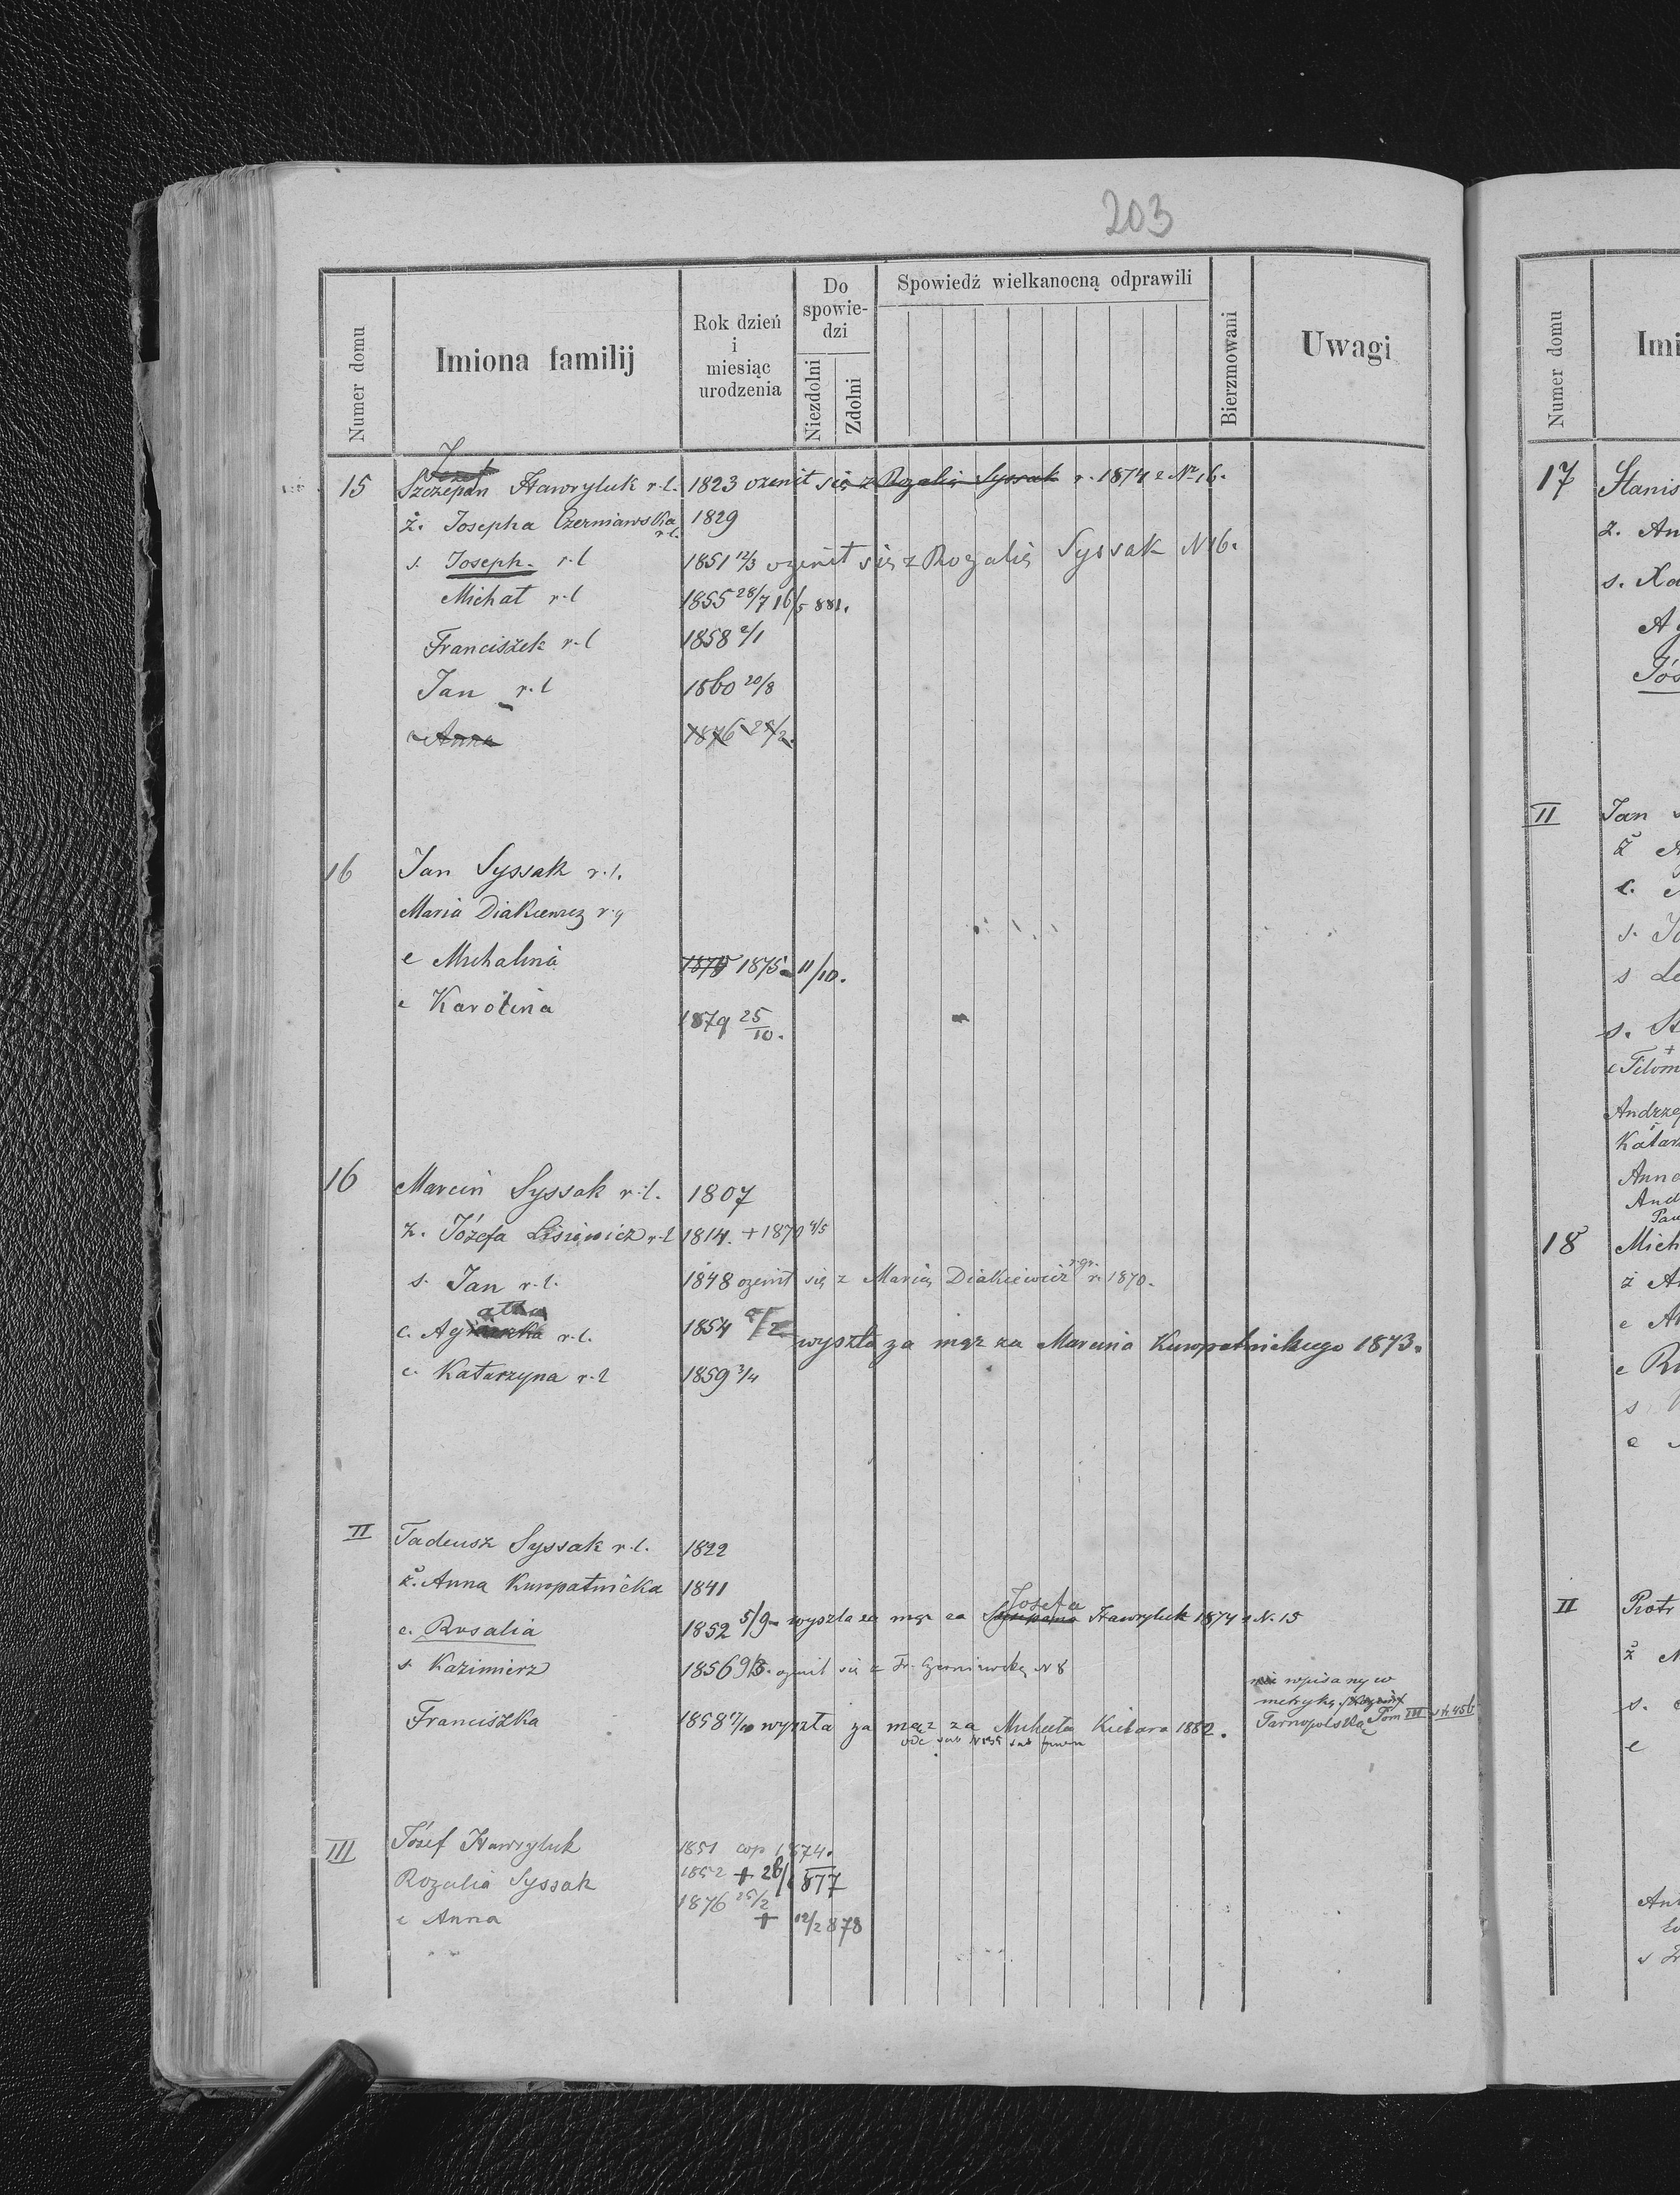 203
Numer domu
Imiona familij
Rok dzień i miesiąc urodzenia
Do spowiedzi
Niezdolni
Zdolni
Spowiedź wielkanocną odprawili
Bierzmowani
Uwagi
15 Szczepan Hawryluk r.l. 1823 ożenił się z Rozalią Syssak r. 1874 z Nr 16.
ż. Josepha Czerniawska r.l. 1829
s. Joseph r.l 1851 12/3 ożenił się z Rozalią Syssak N16.
Michał r.l 1855 28/7 16/5 881.
Franciszek r.l 1858 2/1
Jan r.l 1860 20/8
c Anna 1876 25/2.
16 Jan Syssak r.l.
Maria Diakiewicz r.g
c Michalina 1875 11/10.
c Karolina 1879 25/10.
16 Marcin Syssak r.l. 1807
ż. Józefa Lisiewicz r.l 1814. + 1870 4/5
s. Jan r.l. 1848 ożenił się z Marią Diakiewicz r.gr. r. 1870.
c. Agatha r.l. 1854 wyszła za mąż za Marcina Kuropatnickiego 1873.
c. Katarzyna r.l 1859 3/4
II Tadeusz Syssak r.l. 1822
ż. Anna Kuropatnicka 1841
c. Rosalia 1852 5/9 wyszła za mąż za Szczepana Josefa Hawryluk 1874 z N. 15
s Kazimierz 1856 ożenił się z Fr. Czerniawską N 8
Franciszka 1858 17/10 wyszła za mąż za Michała Kichara 1882.
nie wpisany w
metrykę
Tarnopolska Tom III str 456
III Józef Hawryluk 1851 cop 1874.
Rozalia Syssak 1852 + 26/ 877
c Anna 1876 25/2 + 12/2 878
Numer domu
Imi
17 Stanis
ż. An
s. Xa
A
Jós
II Jan
ż A
c.
s. Jo
s Le
s.
c Filom
Andrzej
Katarz
Anna
And
Paw
18 Mich
ż A
c A
c R
s
c
II Piotr
ż
s.
c
Ant
s Fr